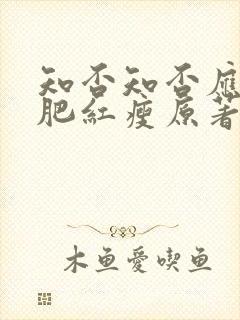 知否知否應
肥紅瘦原著
木鱼愛喫鱼